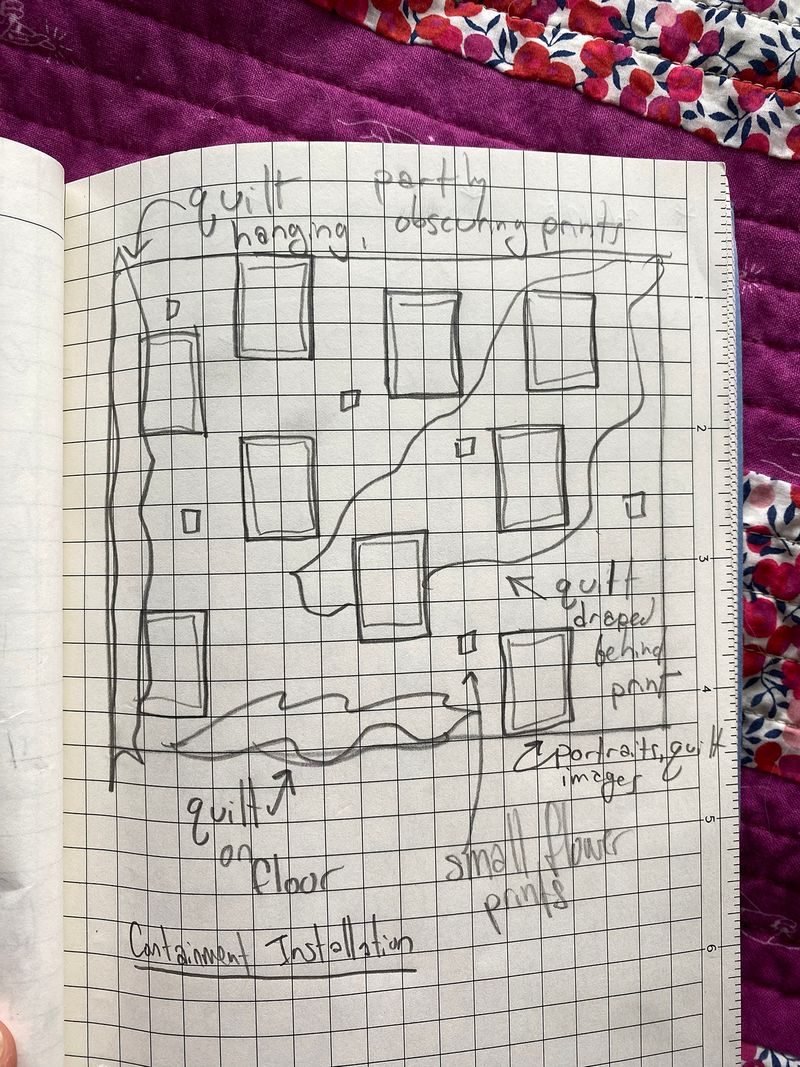 quilt partly
hanging, obscuring prints
quilt
draped
behind
print
portraits, quilt
images
quilt
on
floor
small flower
prints
Containment Installation
1
2
3
4
5
6